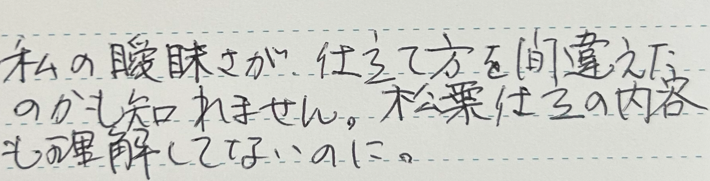 私の曖昧さが、仕立て方を間違えた
のかも知れません。松葉仕立の内容
も理解してないのに。